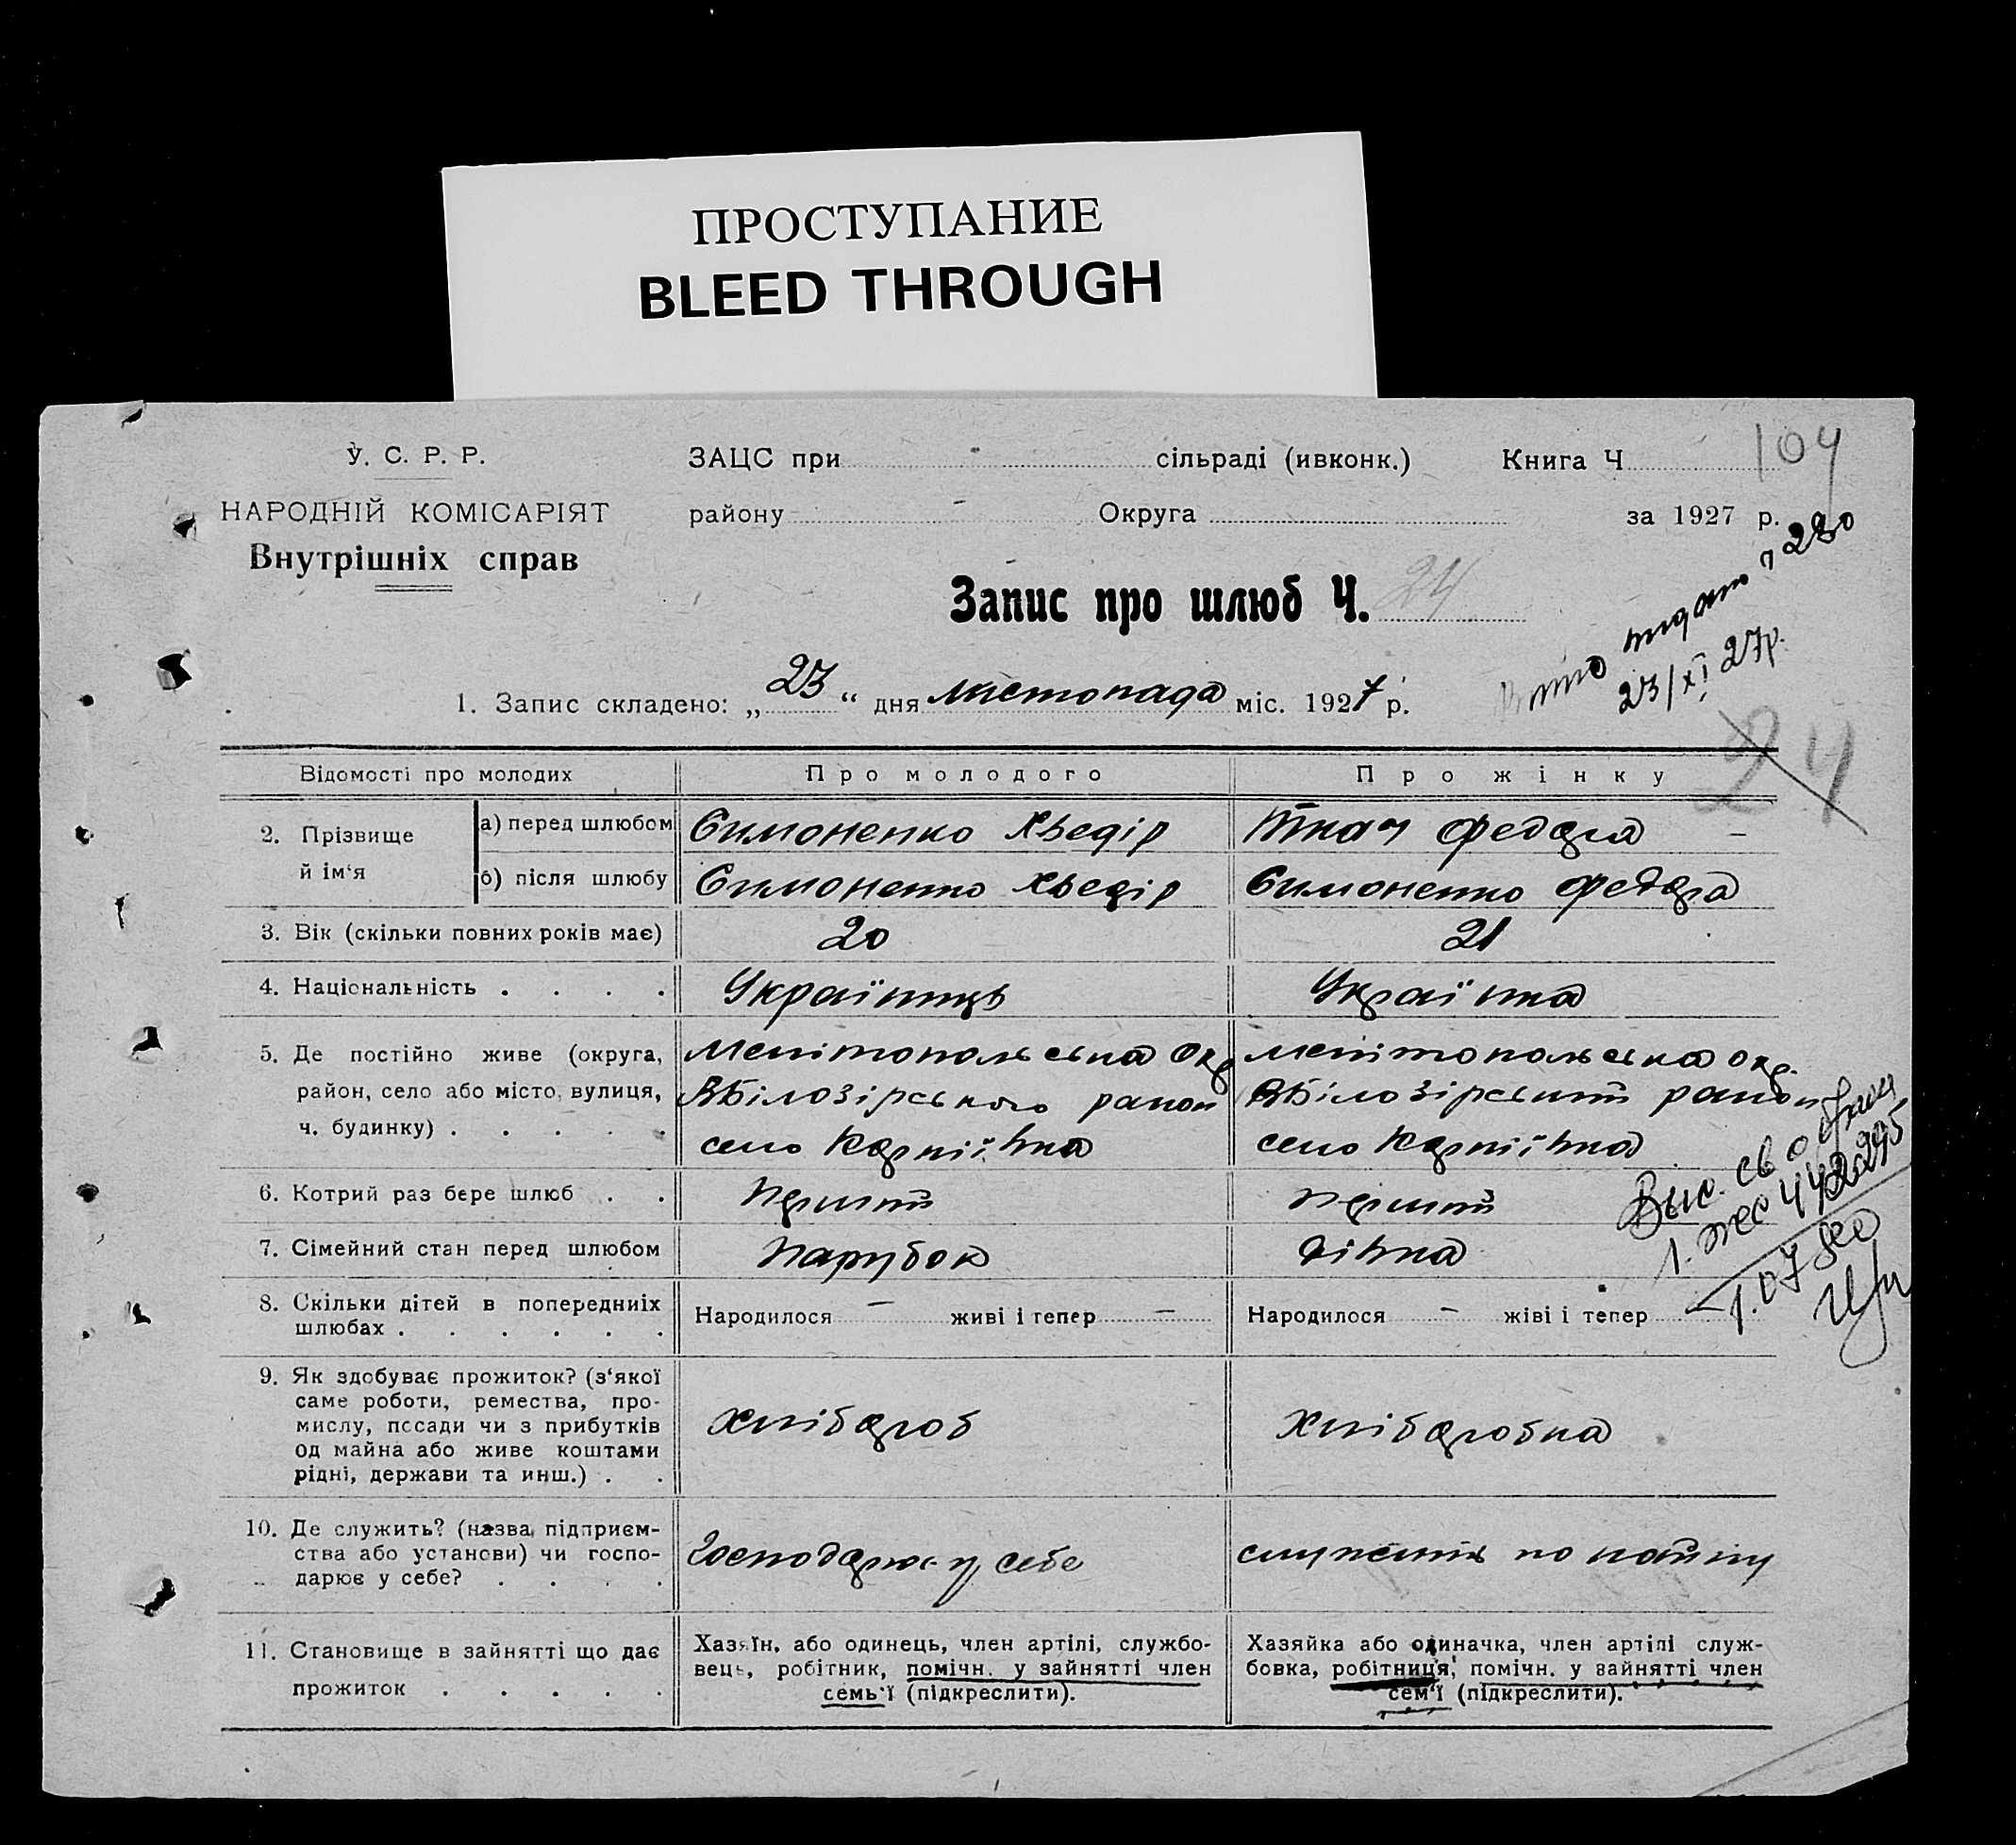 ПРОСТУПАНИЕ
BLEED THROUGH
У. С. Р. Р.
НАРОДНІЙ КОМІСАРІЯТ
Внутрішніх справ
ЗАЦС при - сільраді (ивконк.) Книга Ч 104
району - Округа за 1927 р.
Запис про шлюб Ч. 24
280
23/XI 27р.
1. Запис складено: „23“ дня листопада міс. 1927 р.
24
Відомості про молодих Про молодого Про жінку
2. Прізвище й ім‘я
а) перед шлюбом Симоненко Хведір Ткач Федора -
б) після шлюбу Симоненко Хведір Симоненко Федора
3. Вік (скільки повних років має) 20 21
4. Національність . . . . Українець Українка
5. Де постійно живе (округа, Мелітопольська окр Мелітопольська окр.
район, село або місто, вулиця, ВБілозірського район ВБілозірський район
ч. будинку) . . . . . село Карпівка село Карпівка
6. Котрий раз бере шлюб . . перший перший
7. Сімейний стан перед шлюбом парубок дівка
8. Скільки дітей в попередниіх Народилося — живі і тепер — Народилося — жіві і тепер
шлюбах . . . . . .
9. Як здобуває прожиток? (з‘якої
саме роботи, ремества, про-
мислу, посади чи з прибутків
од майна або живе коштами
рідні, держави та инш.) . .
хлібороб хлібаробка
10. Де служить? (назва підприєм-
ства або установи) чи госпо-
дарює у себе? . . . .
господарює у себе служить по найму
11. Становище в зайнятті що дає
прожиток . . . . .
Хазяїн, або одинець, член артілі, службо-
вець, робітник, помічн. у зайнятті член
семь‘ї (підкреслити).
Хазяйка або одиначка, член артілі служ-
бовка, робітниця, помічн. у зайнятті член
сем‘ї (підкреслити).